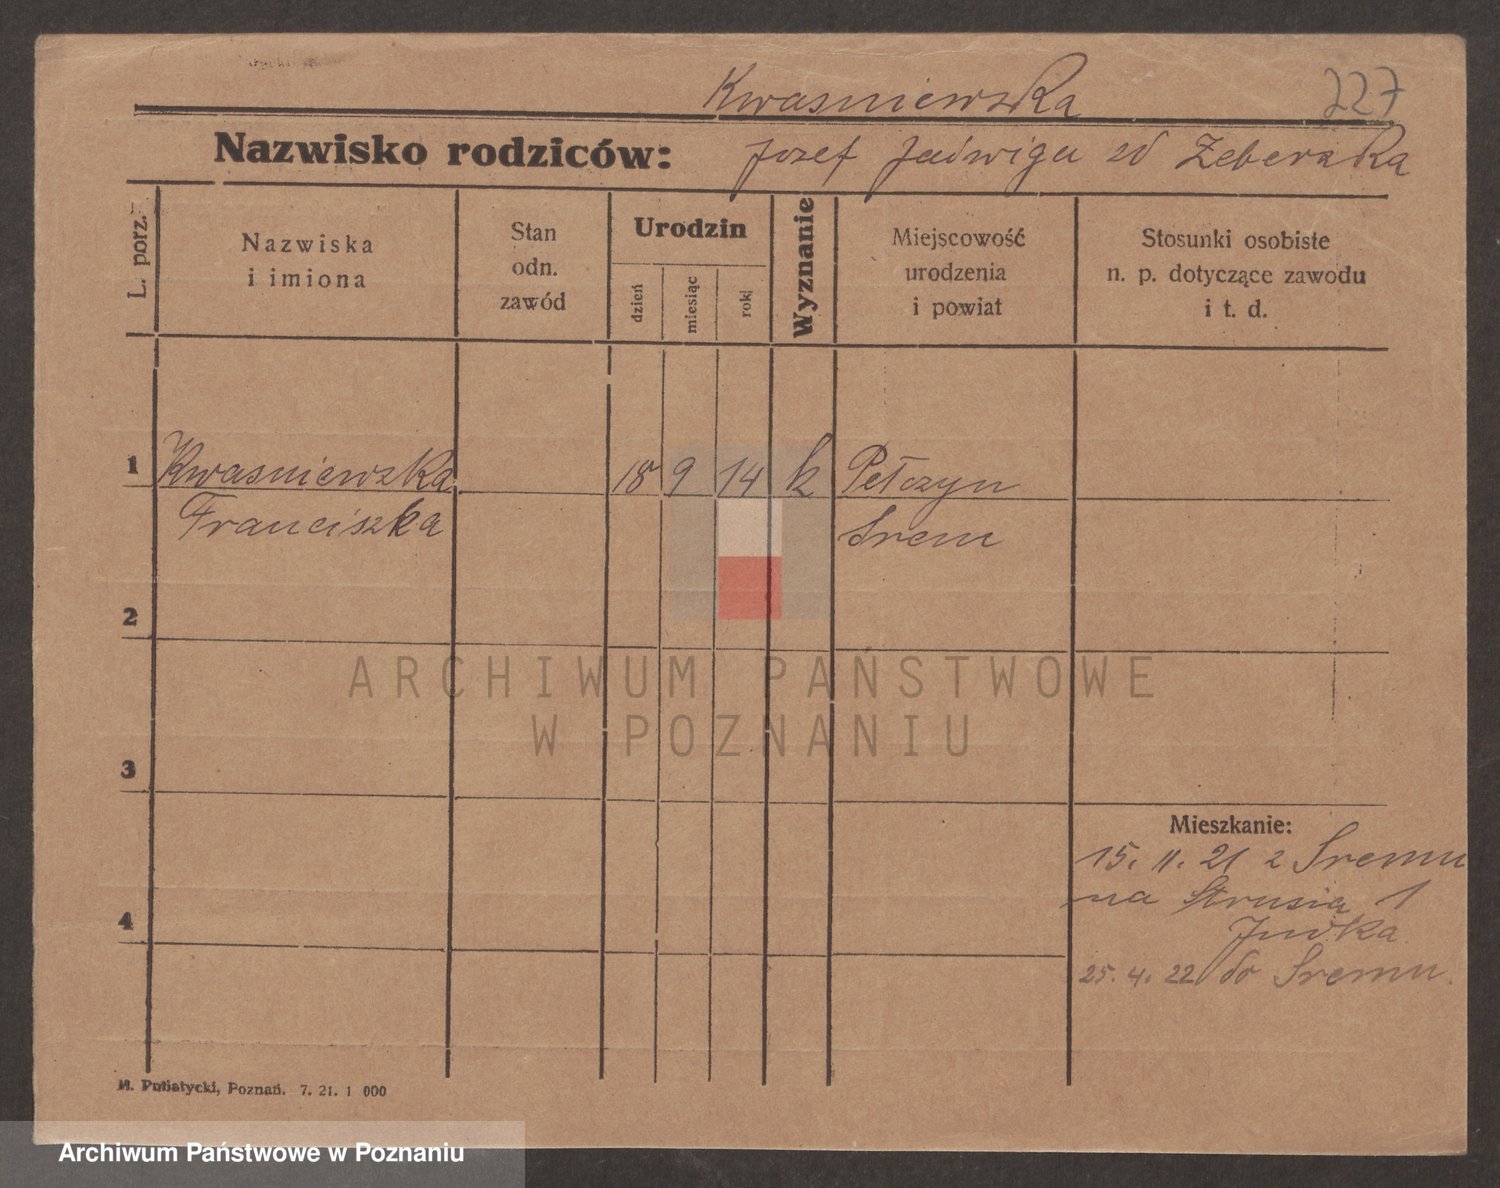 Kwasniewska
227
Nazwisko rodziców: Jozef Jadwiga zd Zeberska
L. porz.
Nazwiska
i imiona
Stan
odn.
zawód
Urodzin
dzień
miesiąc
rok
Wyznanie
Miejscowość
urodzenia
i powiat
Stosunki osobiste
n. p. dotyczące zawodu
i t. d.
1 Kwasniewska 18 9 14 k Petczyn
Franciszka Srem
2
ARCHIWUM PAŃSTWOWE
W POZNANIU
3
Mieszkanie:
15. 11. 21 z Sremu
na Strusia 1
4
25. 4. 22 do Sremu.
M. Putiatycki, Poznań. 7. 21. 1 000
Archiwum Państwowe w Poznaniu